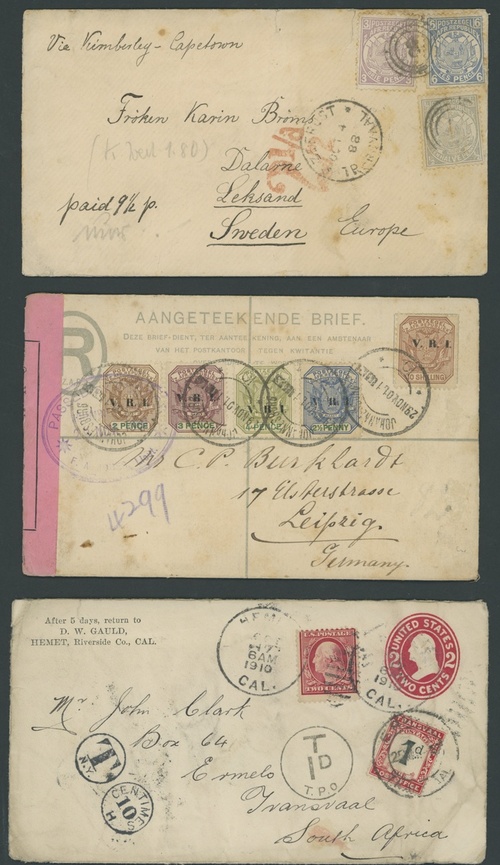 Via Kimberley - Capetown
Fröken Karin Broms
Dalarne
Leksand
Sweden Europe
paid 9½ p.
2½
AANGETEEKENDE BRIEF.
DEZE BRIEF-DIENT, TER AANTEEKENING, AAN EEN AMBTENAAR
VAN HET POSTKANTOOR TEGEN KWITANTIE
R
V. R. I.
V. R. I.
V. R. I.
V. R. I.
V. R. I.
2 PENCE
3 PENCE
2½ PENNY
C. P. Burkhardt
17 Elsterstrasse
Leipzig.
Germany.
4299
After 5 days, return to
D. W. GAULD,
HEMET, Riverside Co., CAL.
6AM
1910
CAL.
U.S. POSTAGE
TWO CENTS
UNITED STATES
2 2
TWO CENTS
1910
CAL.
Mr. John Clark
Box 64
Ermelo
Transvaal
South Africa
T
N.Y.
CENTIMES
10
T
1D
T.P.O.
TRANSVAAL
1d